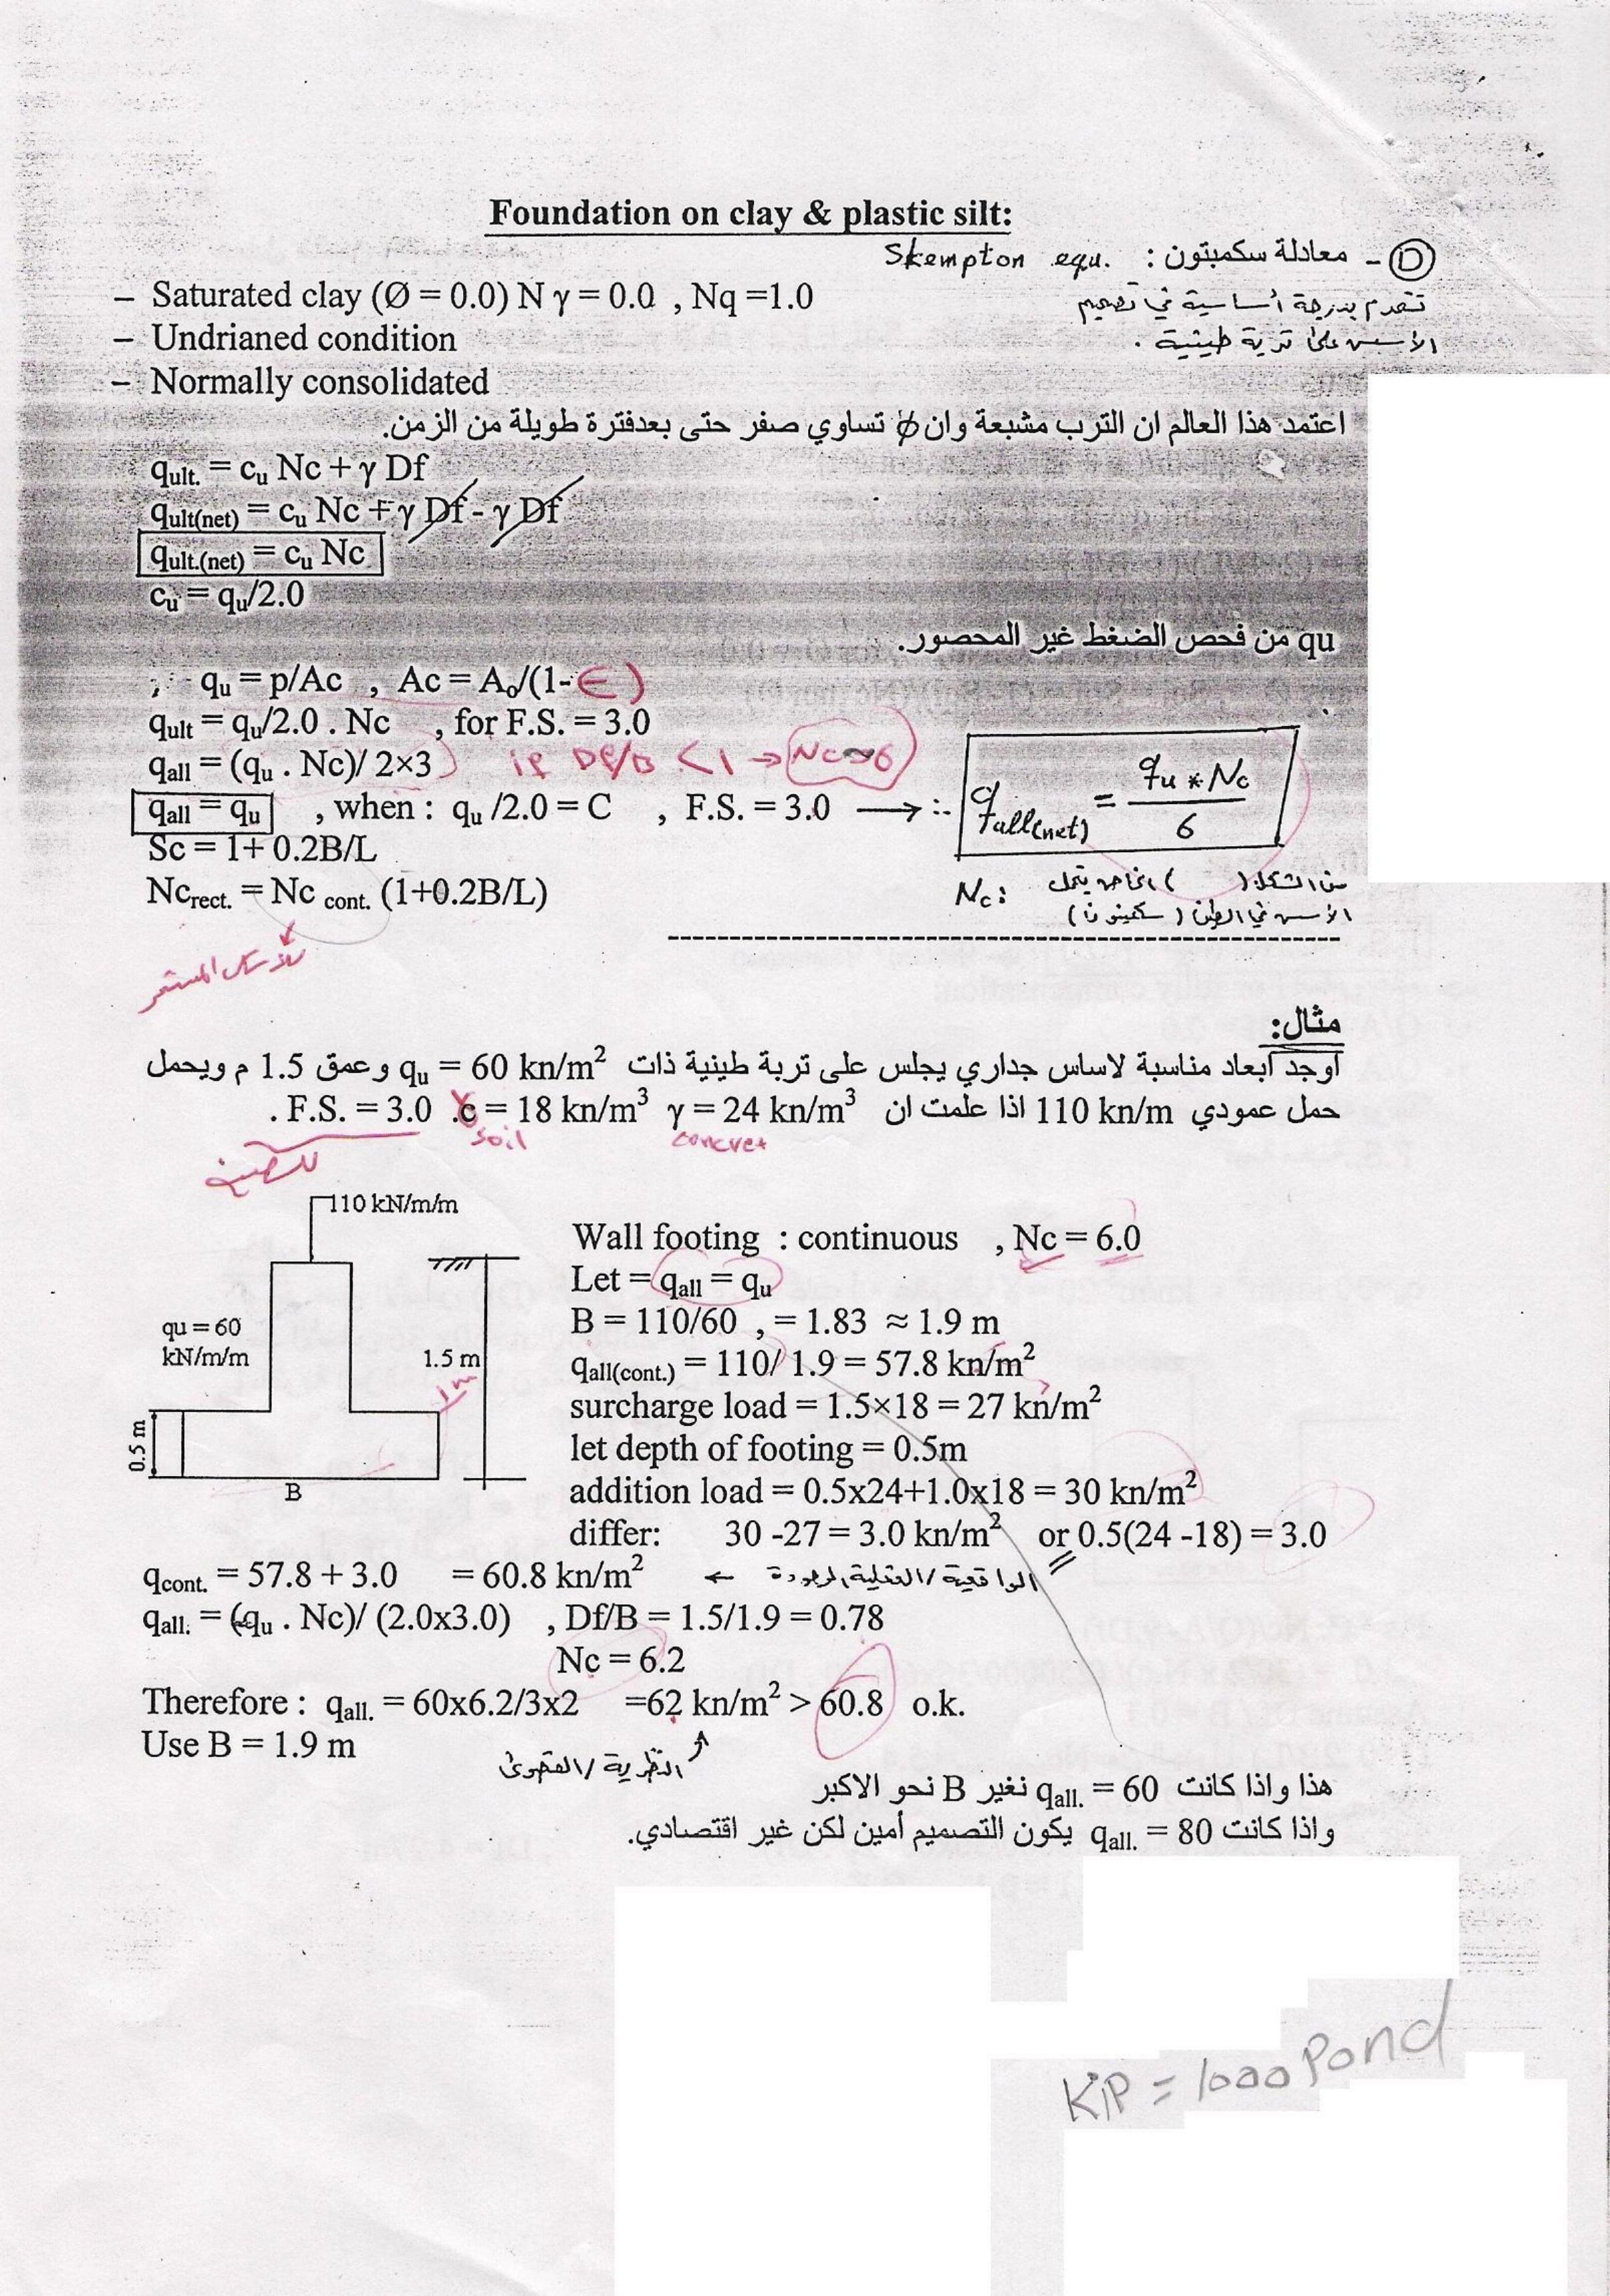 Foundation on clay & plastic silt:
D - معادلة سكمبتون : Skempton equ.
تقدم بدرجة أساسية في تصميم
الأسس على تربة طينية .
– Saturated clay (Ø = 0.0) N γ = 0.0 , Nq =1.0
– Undrianed condition
– Normally consolidated
اعتمد هذا العالم ان الترب مشبعة وان ø تساوي صفر حتى بعدفترة طويلة من الزمن.
qult. = cu Nc + γ Df
qult(net) = cu Nc + γ Df - γ Df
qult.(net) = cu Nc
cu = qu/2.0
qu من فحص الضغط غير المحصور.
qu = p/Ac , Ac = Ao/(1-∈)
qult = qu/2.0 . Nc , for F.S. = 3.0
qall = (qu . Nc)/ 2×3 if Df/B < 1 → Nc≈6
qall = qu , when : qu /2.0 = C , F.S. = 3.0 → ∴ qall(net) = qu * Nc / 6
Sc = 1+ 0.2B/L
Ncrect. = Nc cont. (1+0.2B/L)
Nc: من الشكل ( ) الخاص بتحمل
الأسس في الطين (سكمبتون)
للاساس المستمر
مثال:
أوجد أبعاد مناسبة لاساس جداري يجلس على تربة طينية ذات qu = 60 kn/m² وعمق 1.5 م ويحمل
حمل عمودي 110 kn/m اذا علمت ان γ = 24 kn/m³ c = 18 kn/m³. F.S. = 3.0 .
γ soil concret
110 kN/m/m
qu = 60
kN/m/m
1.5 m
1m
0.5 m
B
Wall footing : continuous , Nc = 6.0
Let = qall = qu
B = 110/60 , = 1.83 ≈ 1.9 m
qall(cont.) = 110/ 1.9 = 57.8 kn/m²
surcharge load = 1.5×18 = 27 kn/m²
let depth of footing = 0.5m
addition load = 0.5x24+1.0x18 = 30 kn/m²
differ: 30 -27 = 3.0 kn/m² or 0.5(24 -18) = 3.0
qcont. = 57.8 + 3.0 = 60.8 kn/m² ← الواقعية / الفعلية الموجودة
qall. = (qu . Nc)/ (2.0x3.0) , Df/B = 1.5/1.9 = 0.78
Nc = 6.2
Therefore : qall. = 60x6.2/3x2 =62 kn/m² > 60.8 o.k.
Use B = 1.9 m
النظرية / القصوى
هذا واذا كانت qall. = 60 نغير B نحو الاكبر
واذا كانت qall. = 80 يكون التصميم أمين لكن غير اقتصادي.
KiP = 1000 Pond